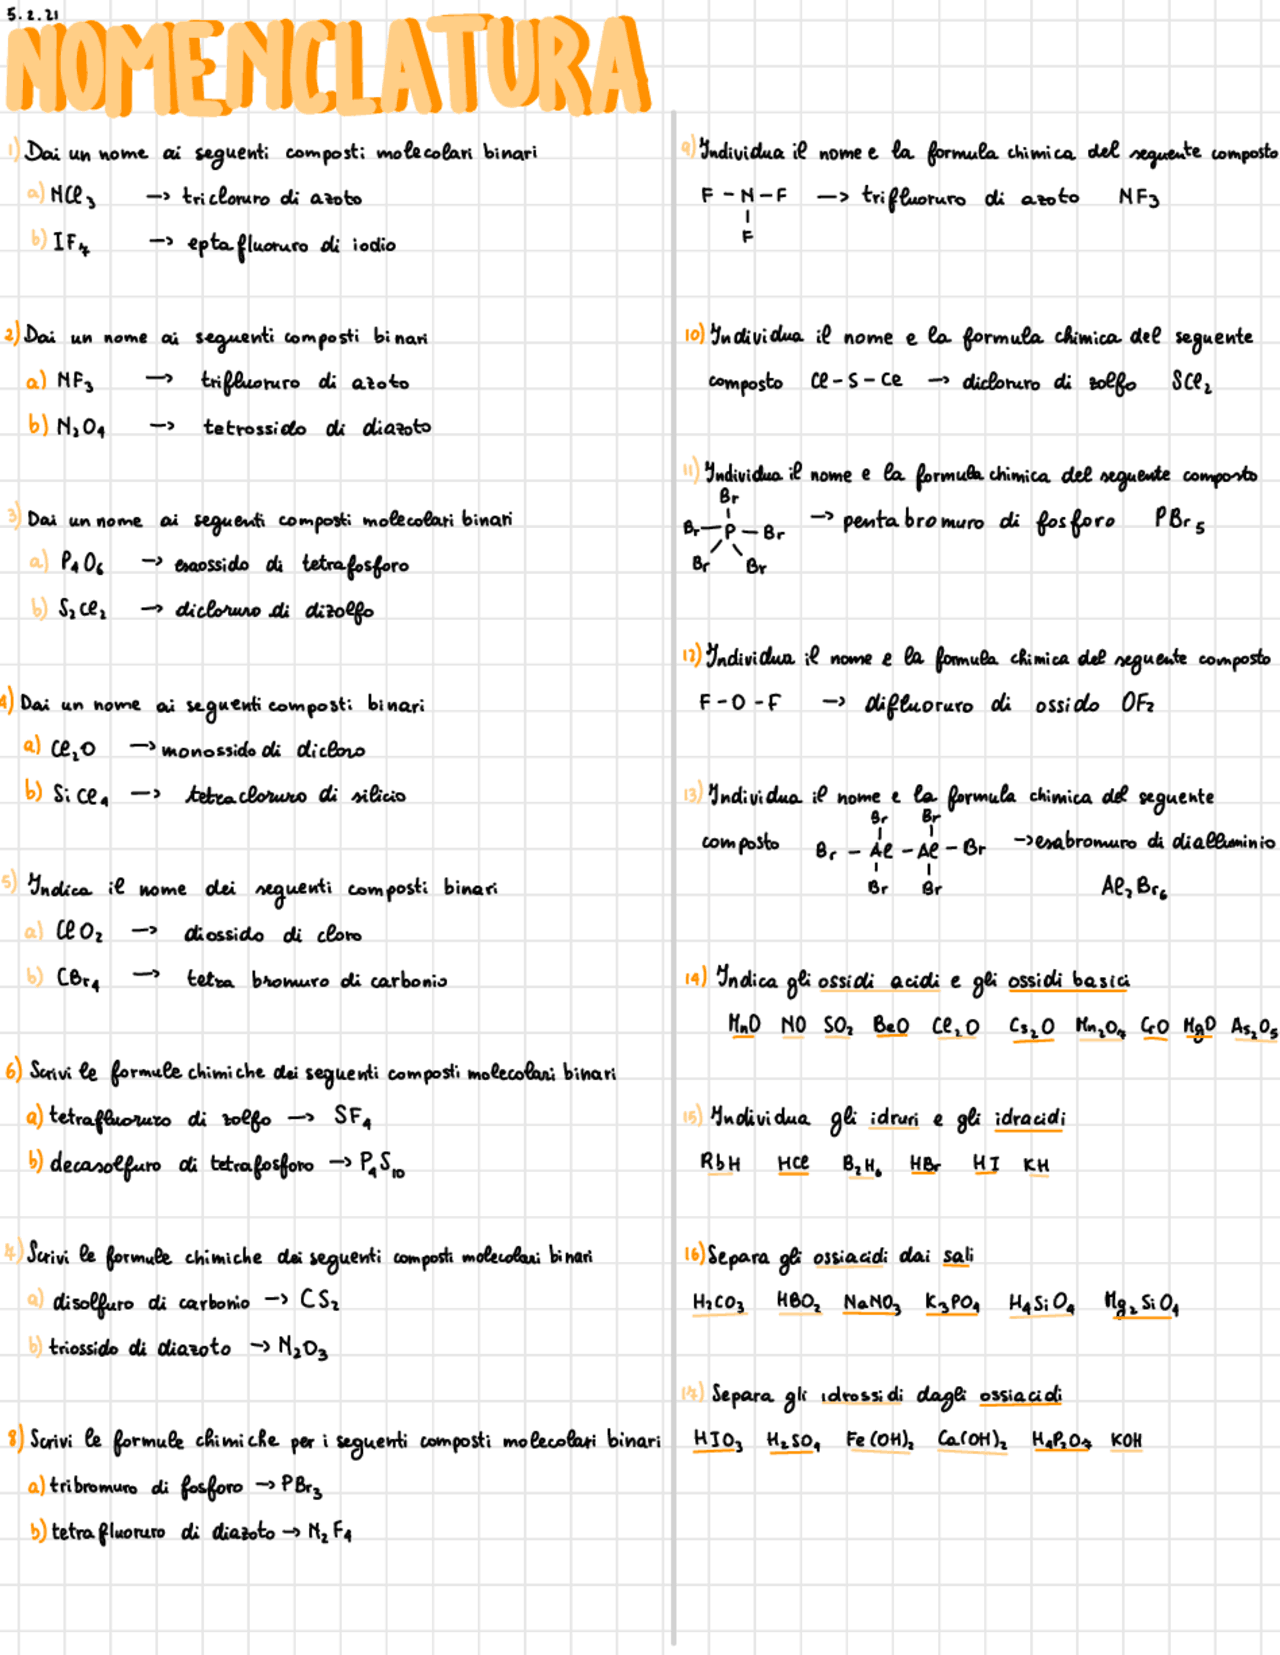 5.2.21
NOMENCLATURA
1) Dai un nome ai seguenti composti molecolari binari
a) NCl₃ → tricloruro di azoto
b) IF₇ → eptafluoruro di iodio
2) Dai un nome ai seguenti composti binari
a) NF₃ → trifluoruro di azoto
b) N₂O₄ → tetrossido di diazoto
3) Dai un nome ai seguenti composti molecolari binari
a) P₄O₆ → esaossido di tetrafosforo
b) S₂Cl₂ → dicloruro di dizolfo
4) Dai un nome ai seguenti composti binari
a) Cl₂O → monossido di dicloro
b) SiCl₄ → tetracloruro di silicio
5) Indica il nome dei seguenti composti binari
a) ClO₂ → diossido di cloro
b) CBr₄ → tetra bromuro di carbonio
6) Scrivi le formule chimiche dei seguenti composti molecolari binari
a) tetrafluoruro di zolfo → SF₄
b) decasolfuro di tetrafosforo → P₄S₁₀
7) Scrivi le formule chimiche dei seguenti composti molecolari binari
a) disolfuro di carbonio → CS₂
b) triossido di diazoto → N₂O₃
8) Scrivi le formule chimiche per i seguenti composti molecolari binari
a) tribromuro di fosforo → PBr₃
b) tetrafluoruro di diazoto → N₂F₄
9) Individua il nome e la formula chimica del seguente composto
F - N - F → trifluoruro di azoto NF₃
F
10) Individua il nome e la formula chimica del seguente
composto Cl - S - Cl → dicloruro di zolfo SCl₂
11) Individua il nome e la formula chimica del seguente composto
Br
Br - P - Br → pentabromuro di fosforo PBr₅
Br Br
12) Individua il nome e la formula chimica del seguente composto
F - O - F → difluoruro di ossido OF₂
13) Individua il nome e la formula chimica del seguente
Br Br
composto Br - Al - Al - Br → esabromuro di dialluminio
Br Br Al₂Br₆
14) Indica gli ossidi acidi e gli ossidi basici
MnO NO SO₂ BeO Cl₂O Cs₂O Mn₂O₇ CrO MgO As₂O₅
15) Individua gli idruri e gli idracidi
RbH HCl B₂H₆ HBr HI KH
16) Separa gli ossiacidi dai sali
H₂CO₃ HBO₂ NaNO₃ K₃PO₄ H₄SiO₄ Mg₂SiO₄
17) Separa gli idrossidi dagli ossiacidi
HIO₃ H₂SO₄ Fe(OH)₂ Ca(OH)₂ H₄P₂O₇ KOH